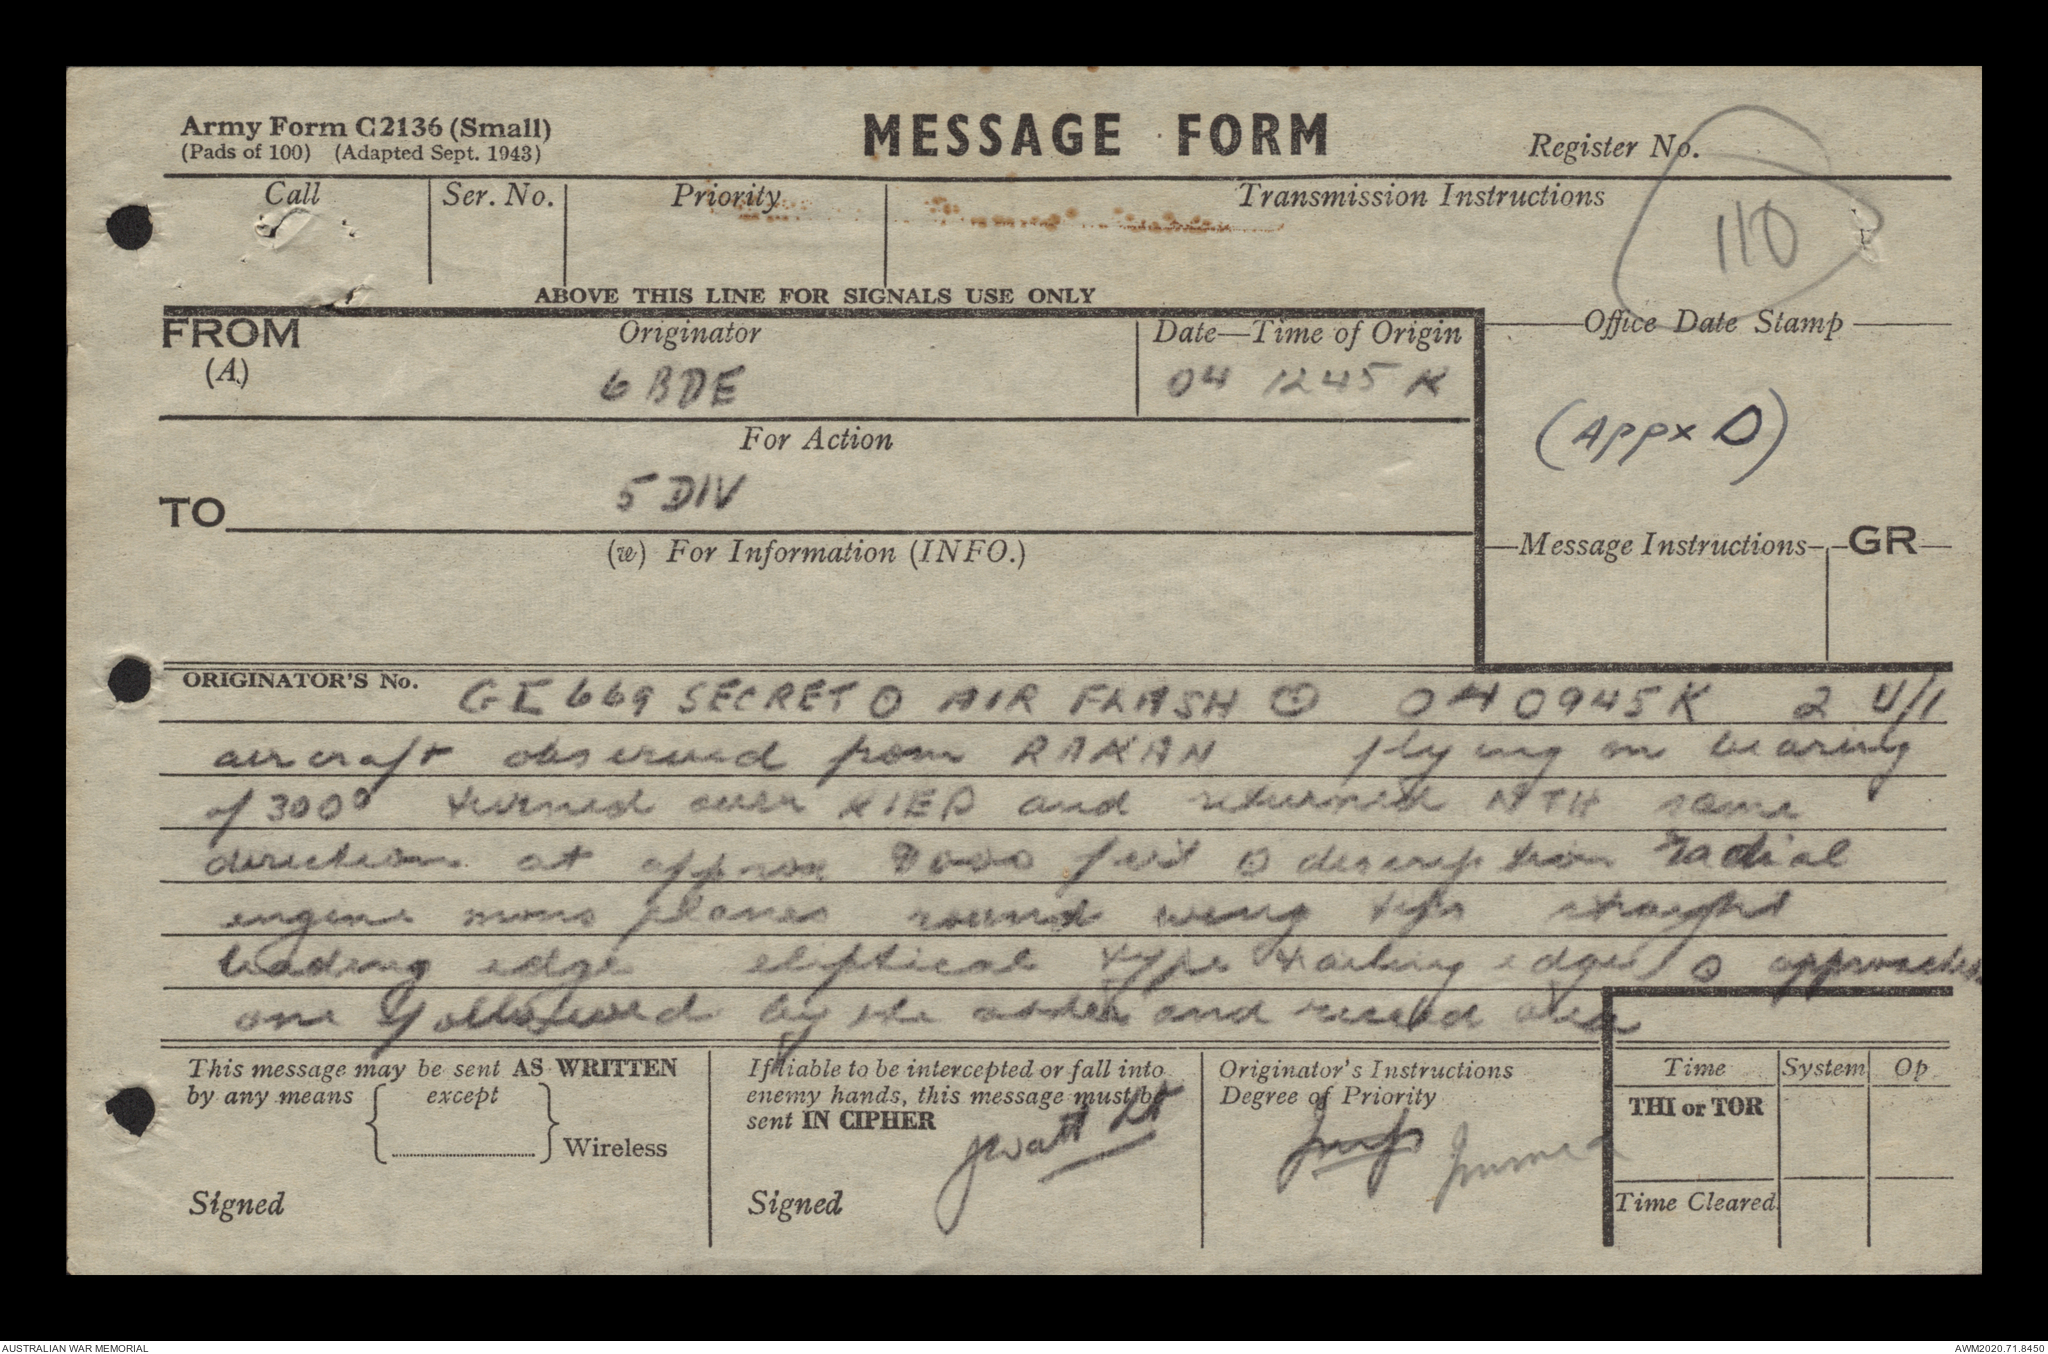 Army Form C2136 (Small)
(Pads of 100) (Adapted Sept. 1943)
MESSAGE FORM
Register No.
110
Call
Ser. No.
Priority
Transmission Instructions
ABOVE THIS LINE FOR SIGNALS USE ONLY
FROM
(A)
Originator
6 BDE
Date—Time of Origin
04 1245 K
Office Date Stamp
(Appx D)
For Action
TO
5 DIV
(w) For Information (INFO.)
Message Instructions
GR
ORIGINATOR'S No.
GI 669 SECRET ⊙ AIR FLASH ⊙ 040945K 2 U/I
aircraft observed from RAKAN flying on bearing
of 300° turned over KIEP and returned NTH same
direction at approx 9000 feet ⊙ description radial
engine mono planes round wing tips straight
leading edge eliptical type trailing edge ⊙
one followed by the other and area
This message may be sent AS WRITTEN
by any means
except
Wireless
Signed
If liable to be intercepted or fall into
enemy hands, this message must be
sent IN CIPHER
JWatt Lt
Signed
Originator's Instructions
Degree of Priority
Immed
Time
System
Op
THI or TOR
Time Cleared
AUSTRALIAN WAR MEMORIAL
AWM2020.71.8450